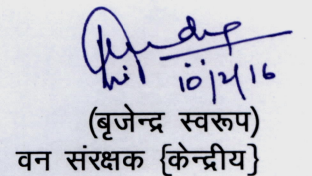 10/2/16
(बृजेन्द्र स्वरूप)
वन संरक्षक {केन्द्रीय}